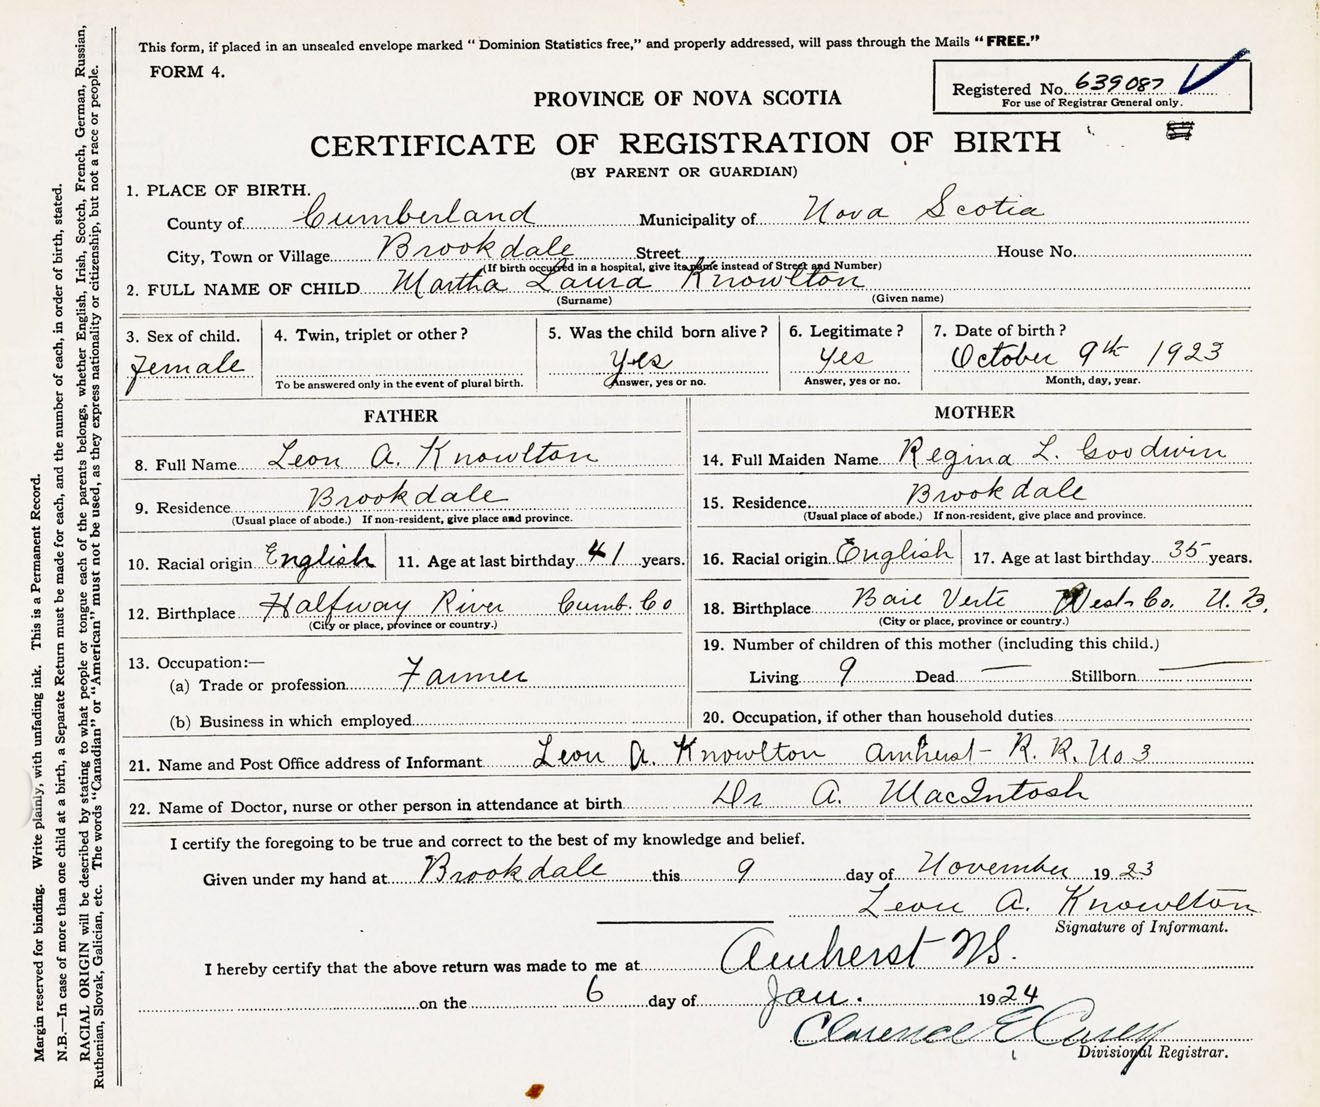 This form, if placed in an unsealed envelope marked "Dominion Statistics free," and properly addressed, will pass through the Mails "FREE."
FORM 4.
Registered No. 639087
For use of Registrar General only.
PROVINCE OF NOVA SCOTIA
CERTIFICATE OF REGISTRATION OF BIRTH
(BY PARENT OR GUARDIAN)
1. PLACE OF BIRTH.
County of Cumberland Municipality of Nova Scotia
City, Town or Village Brookdale Street House No.
(If birth occurred in a hospital, give its name instead of Street and Number)
2. FULL NAME OF CHILD Martha Laura Knowlton
(Surname) (Given name)
3. Sex of child. 4. Twin, triplet or other? 5. Was the child born alive? 6. Legitimate? 7. Date of birth?
Female Yes Yes October 9th 1923
To be answered only in the event of plural birth. Answer, yes or no. Answer, yes or no. Month, day, year.
FATHER MOTHER
8. Full Name Leon A. Knowlton 14. Full Maiden Name Regina L. Goodwin
9. Residence Brookdale 15. Residence Brookdale
(Usual place of abode.) If non-resident, give place and province. (Usual place of abode.) If non-resident, give place and province.
10. Racial origin English 11. Age at last birthday 41 years. 16. Racial origin English 17. Age at last birthday 35 years.
12. Birthplace Halfway River Cumb. Co 18. Birthplace Baie Verte West. Co. N. B.
(City or place, province or country.) (City or place, province or country.)
13. Occupation:— 19. Number of children of this mother (including this child.)
(a) Trade or profession Farmer Living 9 Dead — Stillborn —
(b) Business in which employed 20. Occupation, if other than household duties
21. Name and Post Office address of Informant Leon A. Knowlton Amherst R. R. No 3
22. Name of Doctor, nurse or other person in attendance at birth Dr A. MacIntosh
I certify the foregoing to be true and correct to the best of my knowledge and belief.
Given under my hand at Brookdale this 9 day of November 1923
Leon A. Knowlton
Signature of Informant.
I hereby certify that the above return was made to me at Amherst N.S.
on the 6 day of Jan. 1924
Clarence E Casey
Divisional Registrar.
Margin reserved for binding. Write plainly, with unfading ink. This is a Permanent Record.
N.B.—In case of more than one child at a birth, a Separate Return must be made for each, and the number of each, in order of birth, stated.
RACIAL ORIGIN will be described by stating to what people or tongue each of the parents belongs, whether English, Irish, Scotch, French, German, Russian,
Ruthenian, Slovak, Galician, etc. The words "Canadian" or "American" must not be used, as they express nationality or citizenship, but not a race or people.